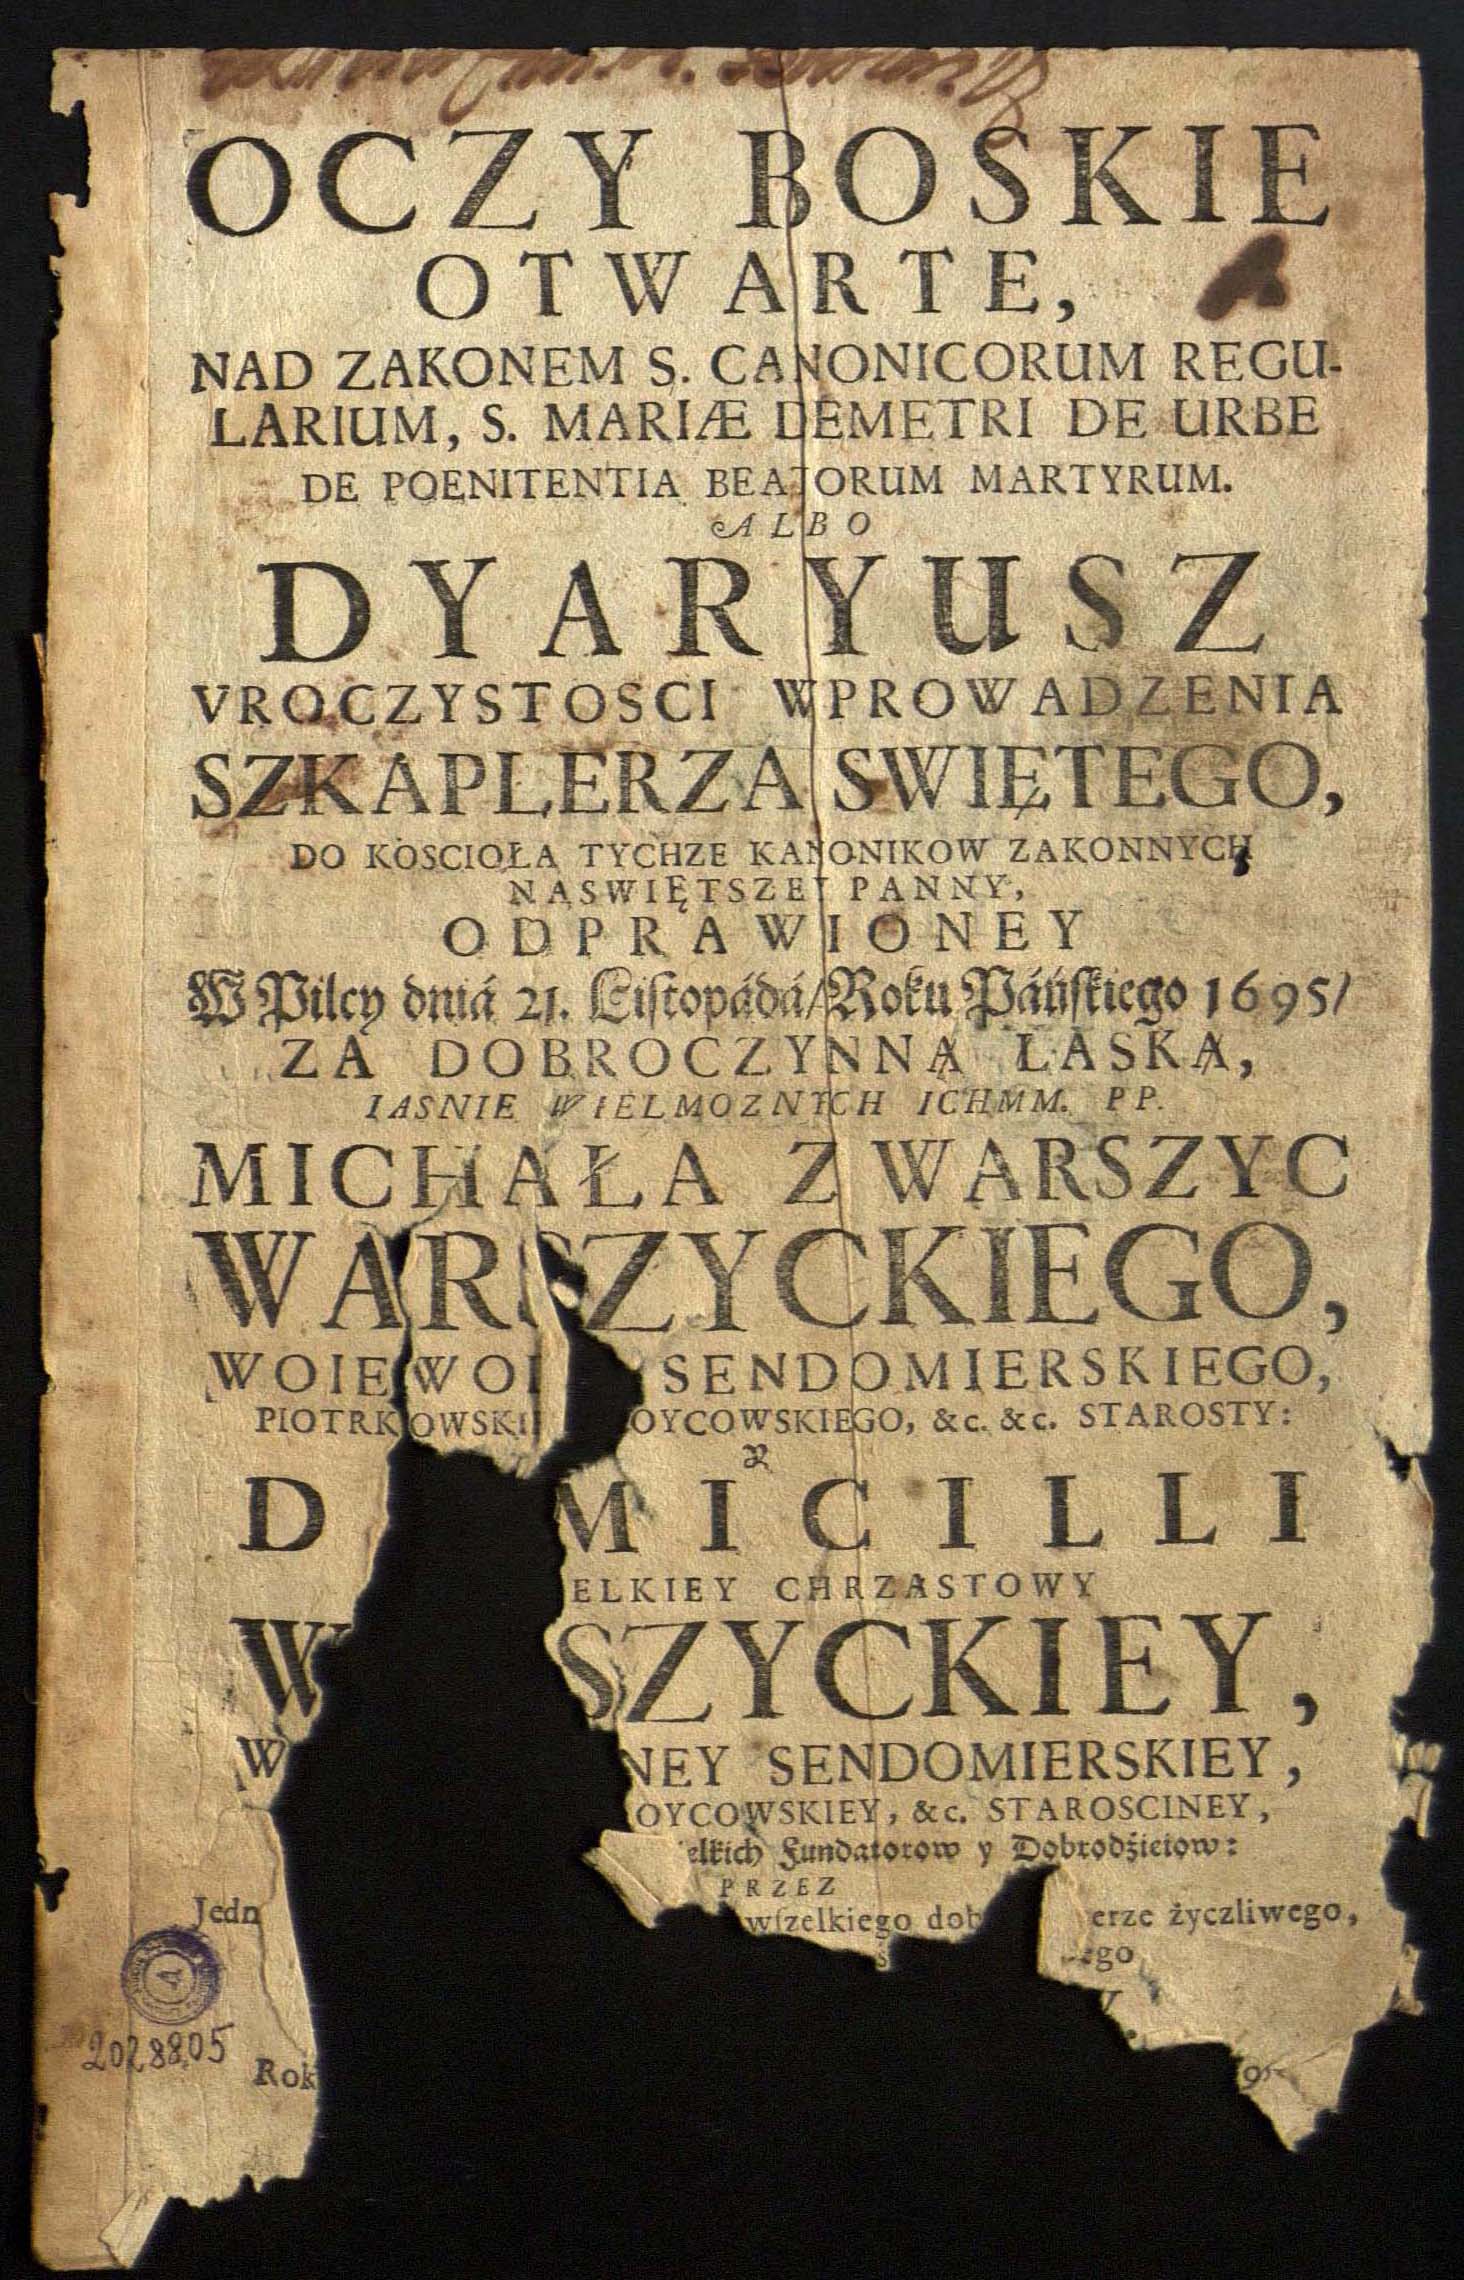 OCZY BOSKIE
OTWARTE,
NAD ZAKONEM S. CANONICORUM REGU-
LARIUM, S. MARIÆ DEMETRI DE URBE
DE POENITENTIA BEATORUM MARTYRUM.
ALBO
DYARYUSZ
VROCZYSTOSCI WPROWADZENIA
SZKAPLERZA SWIĘTEGO,
DO KOSCIOŁA TYCHZE KANONIKOW ZAKONNYCH
NASWIĘTSZEY PANNY,
ODPRAWIONEY
W Pilcy dniá 21. Listopádá/ Roku Páńskiego 1695/
ZA DOBROCZYNNĄ ŁASKĄ,
IASNIE WIELMOZNYCH ICHMM. PP.
MICHAŁA Z WARSZYC
WARSZYCKIEGO,
WOIEWO SENDOMIERSKIEGO,
PIOTRKOWSKI OYCOWSKIEGO, &c. &c. STAROSTY:
Y
D MICILLI
ELKIEY CHRZASTOWY
W SZYCKIEY,
W NEY SENDOMIERSKIEY,
OYCOWSKIEY, &c. STAROSCINEY,
elkich Fundatorow y Dobrodźieiow:
PRZEZ
Jedn wſzelkiego dob erze życzliwego,
ego
Rok
2028805